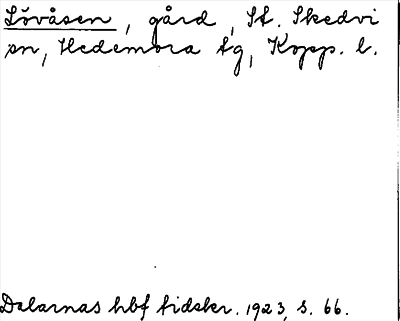 Lövåsen, gård, St. Skedvi
sn, Hedemora tg, Kopp. l.
Dalarnas hbf tidskr. 1923, s. 66.